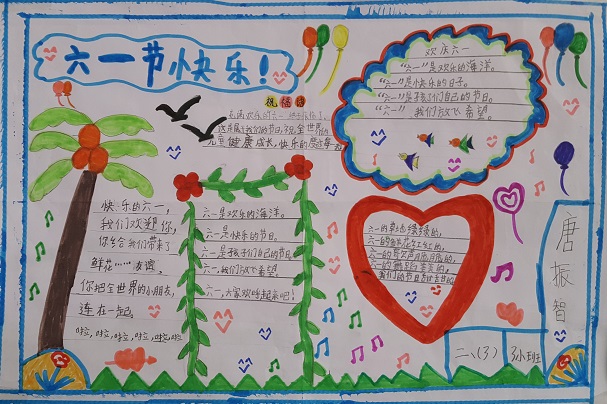 六一节快乐!
欢庆六一
“六一”是欢乐的海洋。
“六一”是快乐的日子。
“六一”是孩子们自己的节日。
“六一”我们放飞希望。
祝福语
儿童健康成长,快乐的
快乐的六一,
我们欢迎你,
你给我们带来了
鲜花……友谊。
你把全世界的小朋友,
连在一起。
啦,啦,啦,啦,啦,啦
六一是欢乐的海洋。
六一是快乐的节日。
六一是孩子们自己的节日。
六一,我们放飞希望。
六一,大家欢呼起来吧!
六一的
六一的鲜花红红的,
六一的
六一的
我们的节日
唐振智
二、(3)
孙班